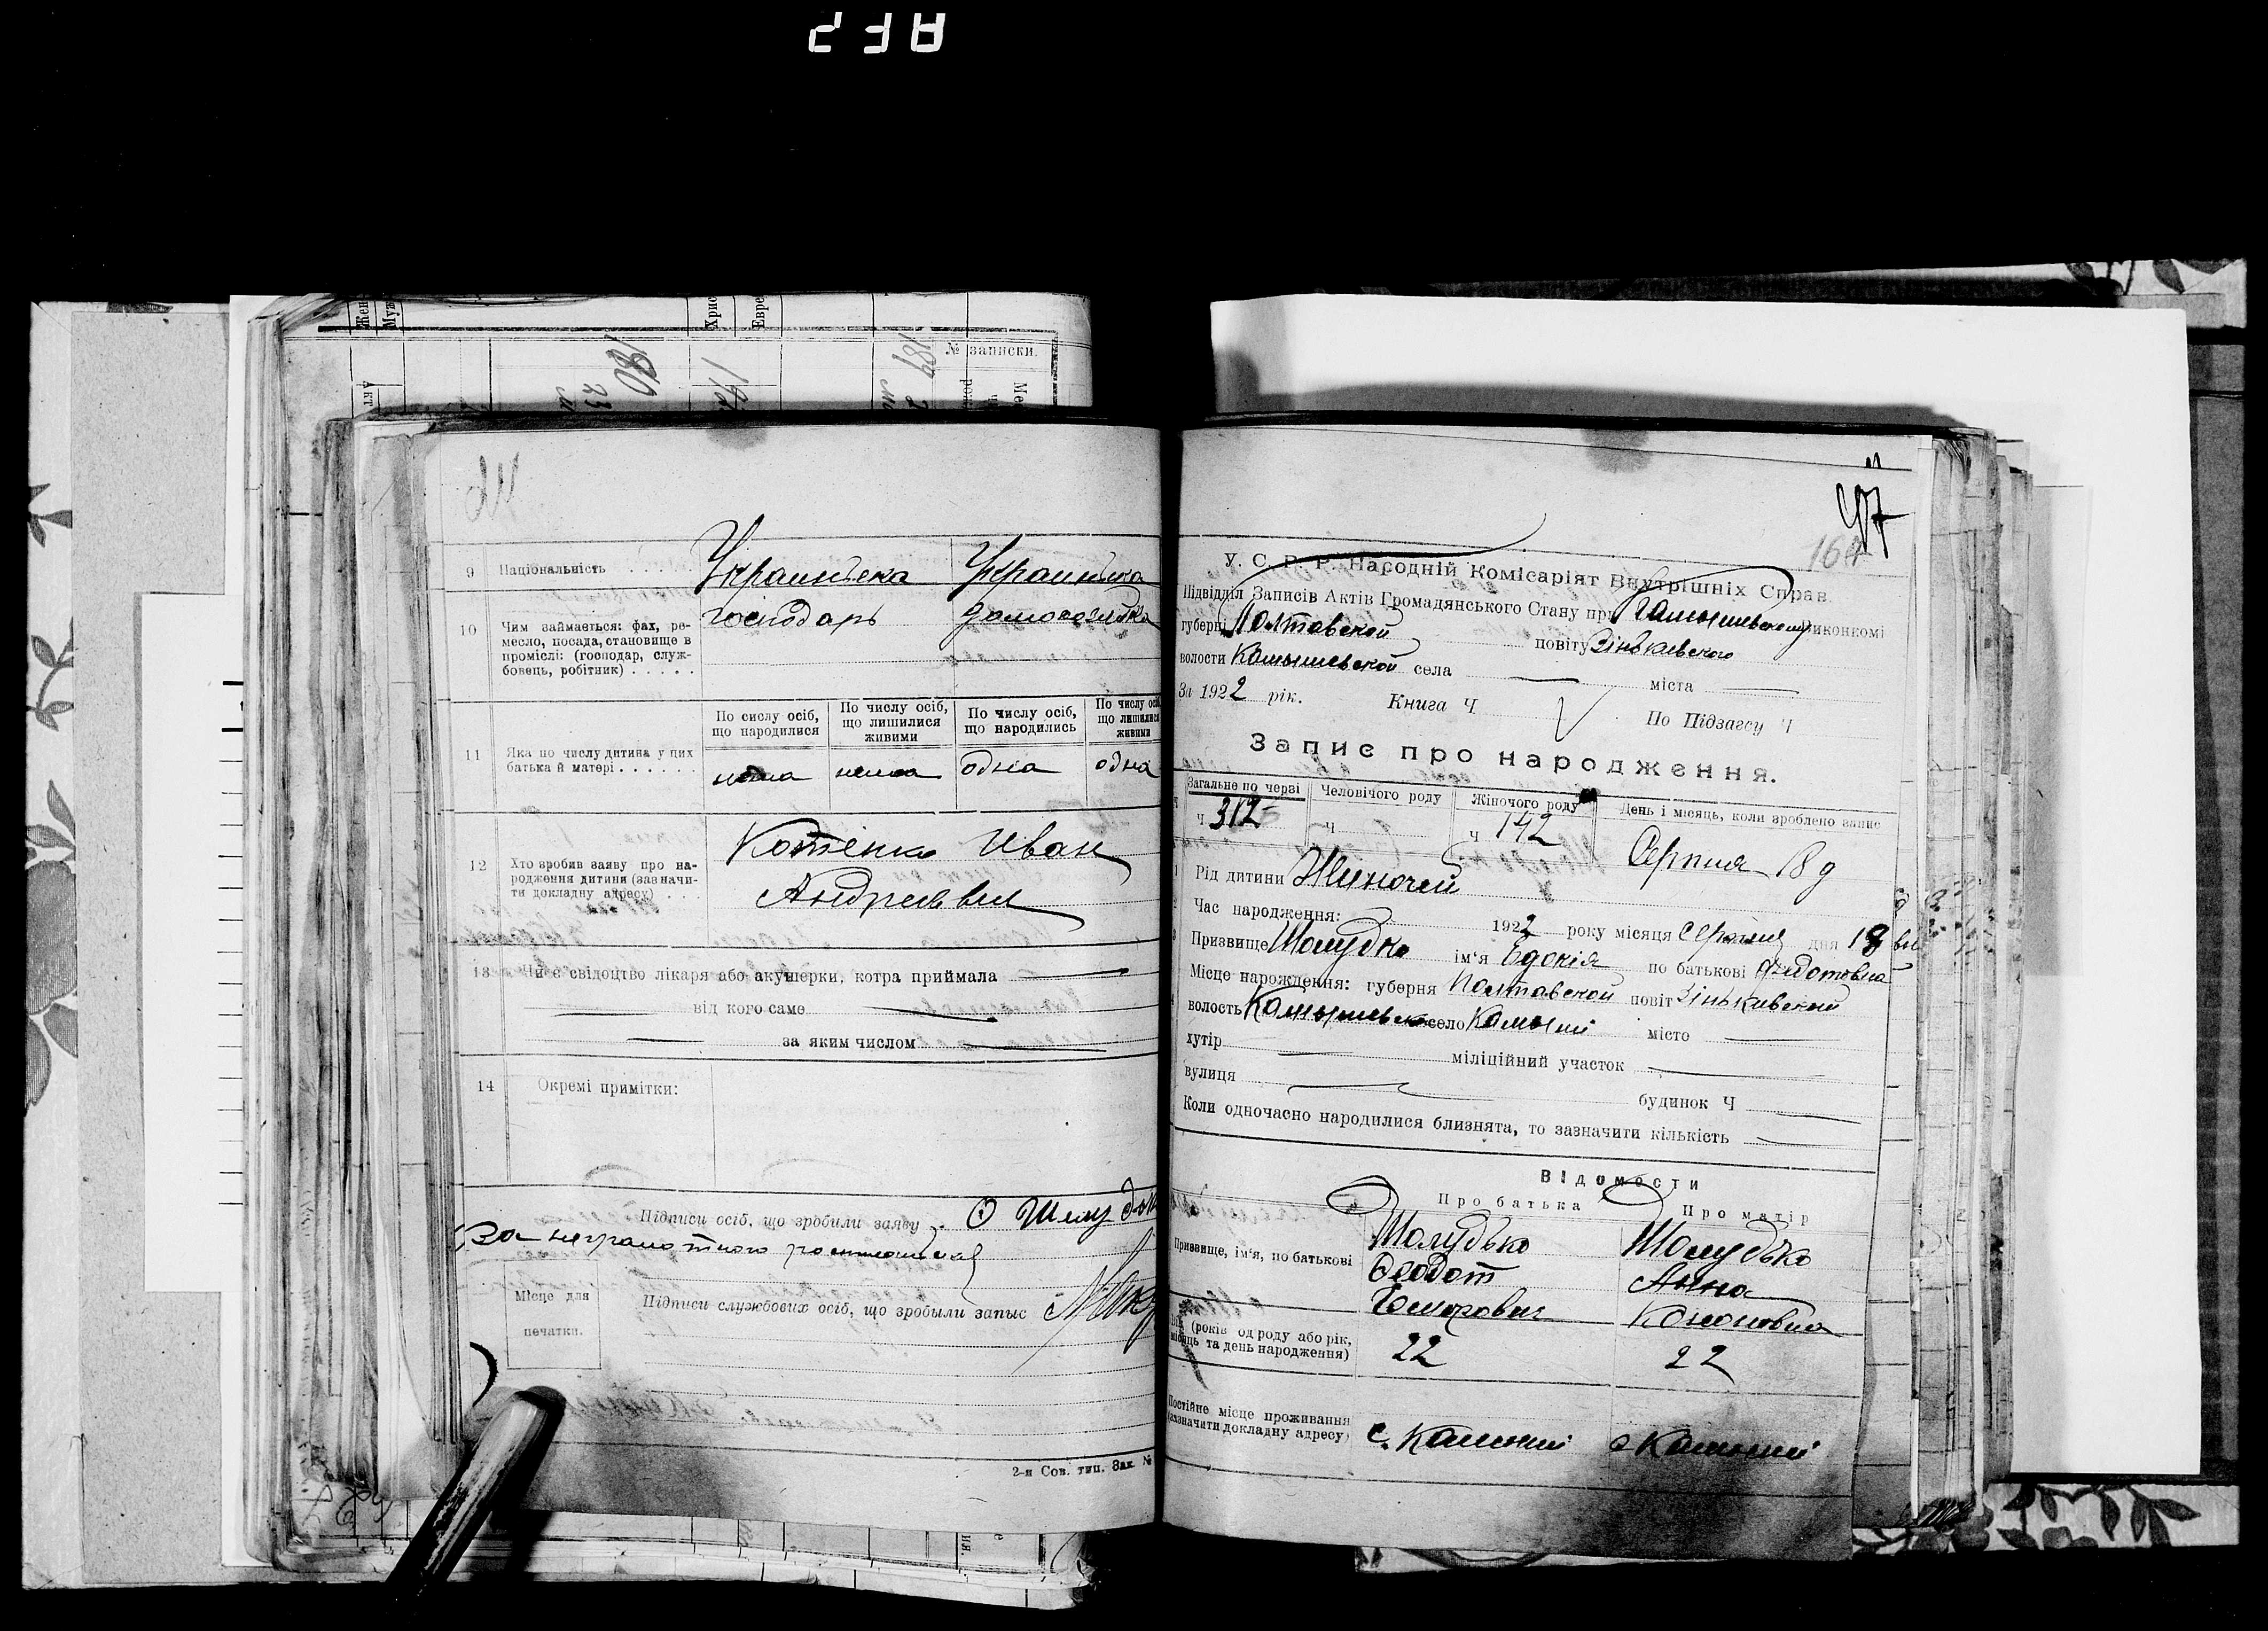 189
№ записки.
180
Національність
9
Украинска
Украинка
10
Чим займається: фах, ре-
месло, посада, становище в
промислі: (господар, служ-
бовець, робітник)
господарь
11
Яка по числу дитина у цих
батька й матері
По сислу осіб,
що народилися
По числу осіб,
що лишилися
живими
По числу осіб,
що народились
По числу осіб
що лишилися
живими
нема
нема
одна
одна
12
Хто зробив заяву про на-
родження дитини (зазначи-
ти докладну адресу)
Котенко Иван
Андреевич
13 Чи є свідоцтво лікаря або акушерки, котра приймала
від кого саме
за яким числом
14 Окремі примітки:
Підписи осіб, що зробили заяву
За неграмотного
Місце для
печатки.
Підписи службових осіб, що зробыли запыс
2-я Сов. тип. Зак №
47
164
У. С. Р. Р. Народній Комісаріят Внутрішніх Справ.
Підвідділ Записів Актів Громадянського Стану при Камышевском виконкомі
губерні Полтавской повіту Зіньківского
волости Камышевской села міста
За 1922 рік. Книга Ч По Підзагсу Ч
Запис про народження.
Загальне по черзі
Человічого роду
Жіночого роду
День і місяць, коли зроблено запис
ч 312
ч
ч 142
Серпня 18 д
Рід дитини Жиночей
Час народження: 1922 року місяця Серпня дня 18
Призвище Шолудко ім'я Едокія по батькові Федотовна
Місце нарождення: губерня Полтавской повіт Зіньківской
волость село Камыши місто
хутір міліційний участок
вулиця будинок Ч
Коли одночасно народилися близнята, то зазначити кількість
Відомости
Про батька
Про матір
Призвище, ім'я, по батькові
Шолудько
Феодот
Шолудько
Анна
Кононовна
Вік (років од роду або рік,
місяць та день народження)
22
22
Постійне місце проживання
(зазначити докладну адресу)
с. Камыши
с Камыши